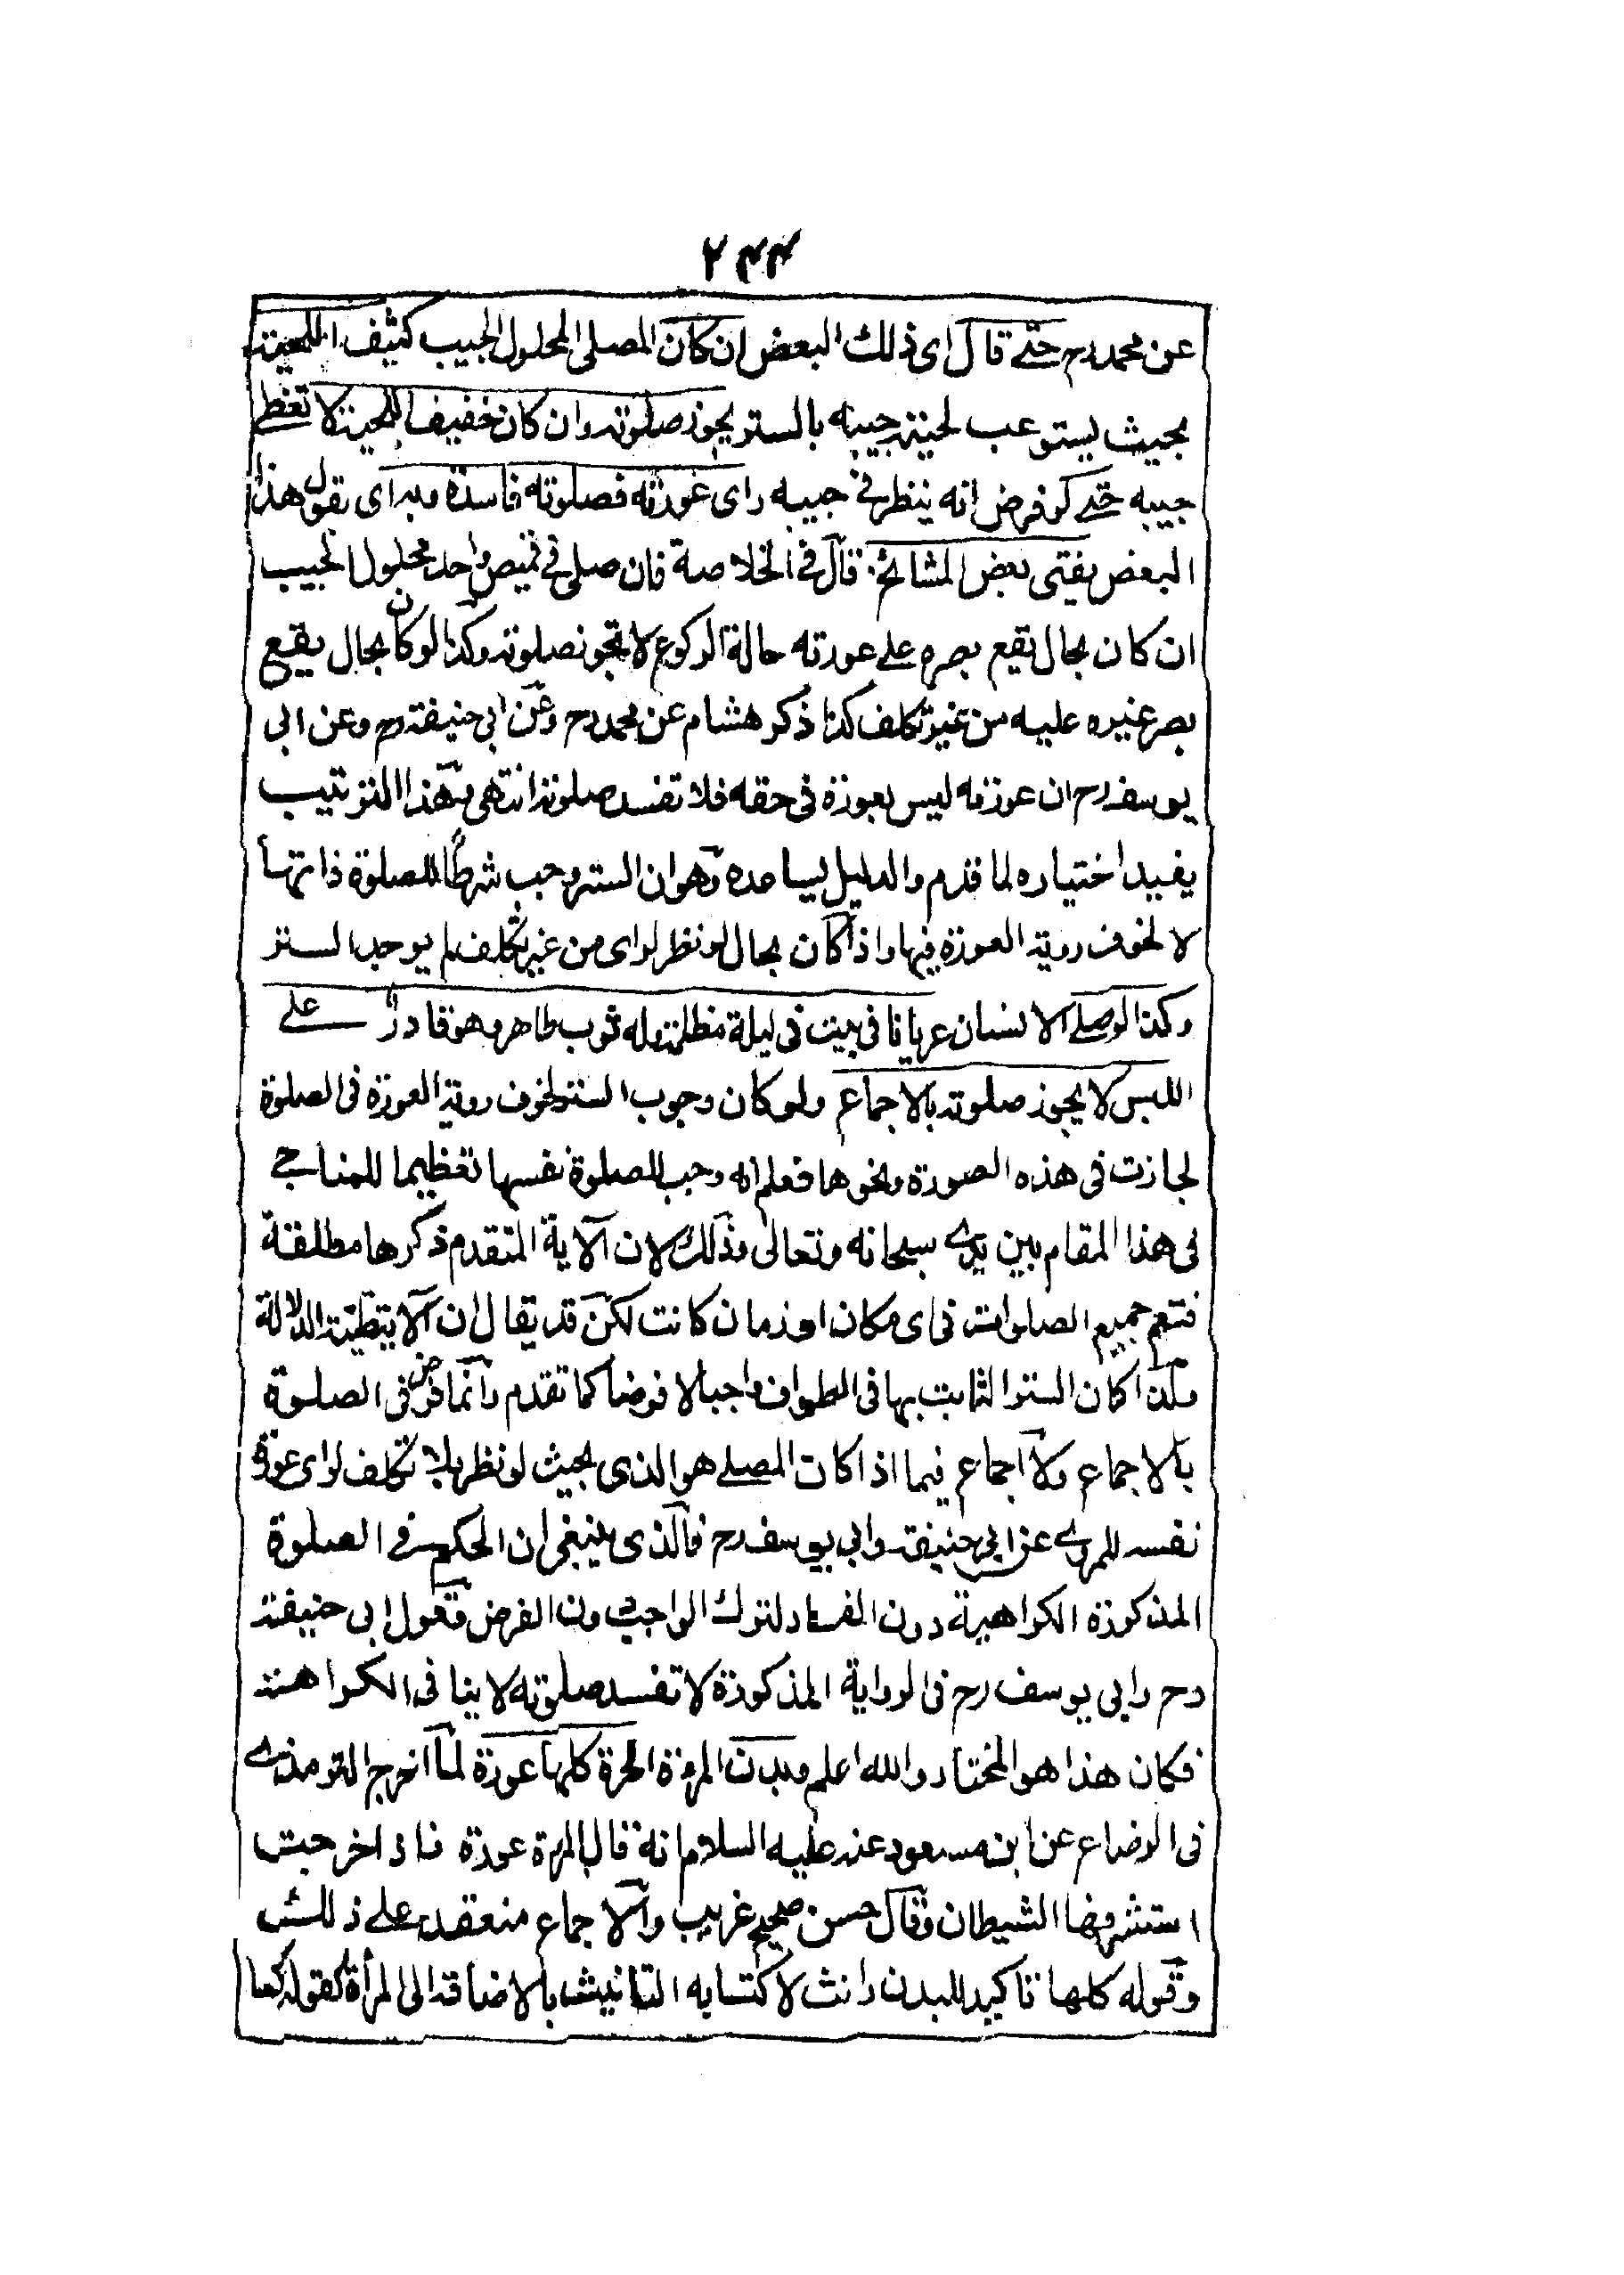 ٢٤٤
عن محمد رح حتى قال اى ذلك البعض ان كان المصلى المحلول الجيب كثيف اللحية
بحيث يستوعب لحيته جيبه بالستر يجوز صلوته وان كان خفيف اللحية لا تغطے
جيبه حتے لو فرض انه ينظر فے جيبه راى عورته فصلوته فاسدة وبه اى بقول هذا
البعض يفتى بعض المشائخ قال فے الخلاصة فان صلى فے قميص واحد محلول الجيب
ان كان بحال يقع بصره علے عورته حالة الركوع لا تجوز صلوته وكذا لو كان بحال يقع
بصر غيره عليه من غير تكلف كذا ذكر هشام عن محمد رح وعن ابى حنيفة رح وعن ابى
يوسف رح ان عورته ليس بعورة فى حقه فلا تفسد صلوته انتهى وهذا الترتيب
يفيد اختياره لما قدم والدليل يساعده وهو ان الستر وجب شرطا للصلوة ذاتها
لا لخوف روية العورة فيها واذا كان بحال لو نظر لراى من غير تكلف لم يوجد الستر
وكذا لو صلے الانسان عريانا فى بيت فى ليلة مظلمة وله ثوب طاهر وهو قادر علے
اللبس لا يجوز صلوته بالاجماع ولو كان وجوب الستر لخوف روية العورة فى الصلوة
لجازت فى هذه الصورة ونحوها فعلم انه وجب للصلوة نفسها تعظيما للمناجے
فى هذا المقام بين يدے سبحانه وتعالى وذلك لان الآية المتقدم ذكرها مطلقة
فتعم جميع الصلوات فى اى مكان او زمان كانت لكن قد يقال ان الآية ظنية الدلالة
ولذا كان الستر الثابت بها فى الطواف واجبا لا فرضا كما تقدم وانما فرض فى الصلوة
بالاجماع ولا اجماع فيما اذا كان المصلے هو الذى بحيث لو نظر بلا تكلف لراى عورة
نفسه للمروے عن ابى حنيفة وابى يوسف رح فالذى ينبغى ان الحكم فے الصلوة
المذكورة الكراهية دون الفساد لترك الواجب دون الفرض وقول ابى حنيفة
رح وابى يوسف رح فى الرواية المذكورة لا تفسد صلوته لا ينافى الكراهة
فكان هذا هو المختار والله اعلم وبدن المرءة الحرة كلها عورة لما اخرج الترمذے
فى الرضاع عن ابن مسعود عنه عليه السلام انه قال المرءة عورة فاذا خرجت
استشرفها الشيطان وقال حسن صحيح غريب والاجماع منعقد علے ذلك
وقوله كلها تاكيد للبدن وانث لاكتسابه التانيث بالاضافة الى المرأة كقوله كما